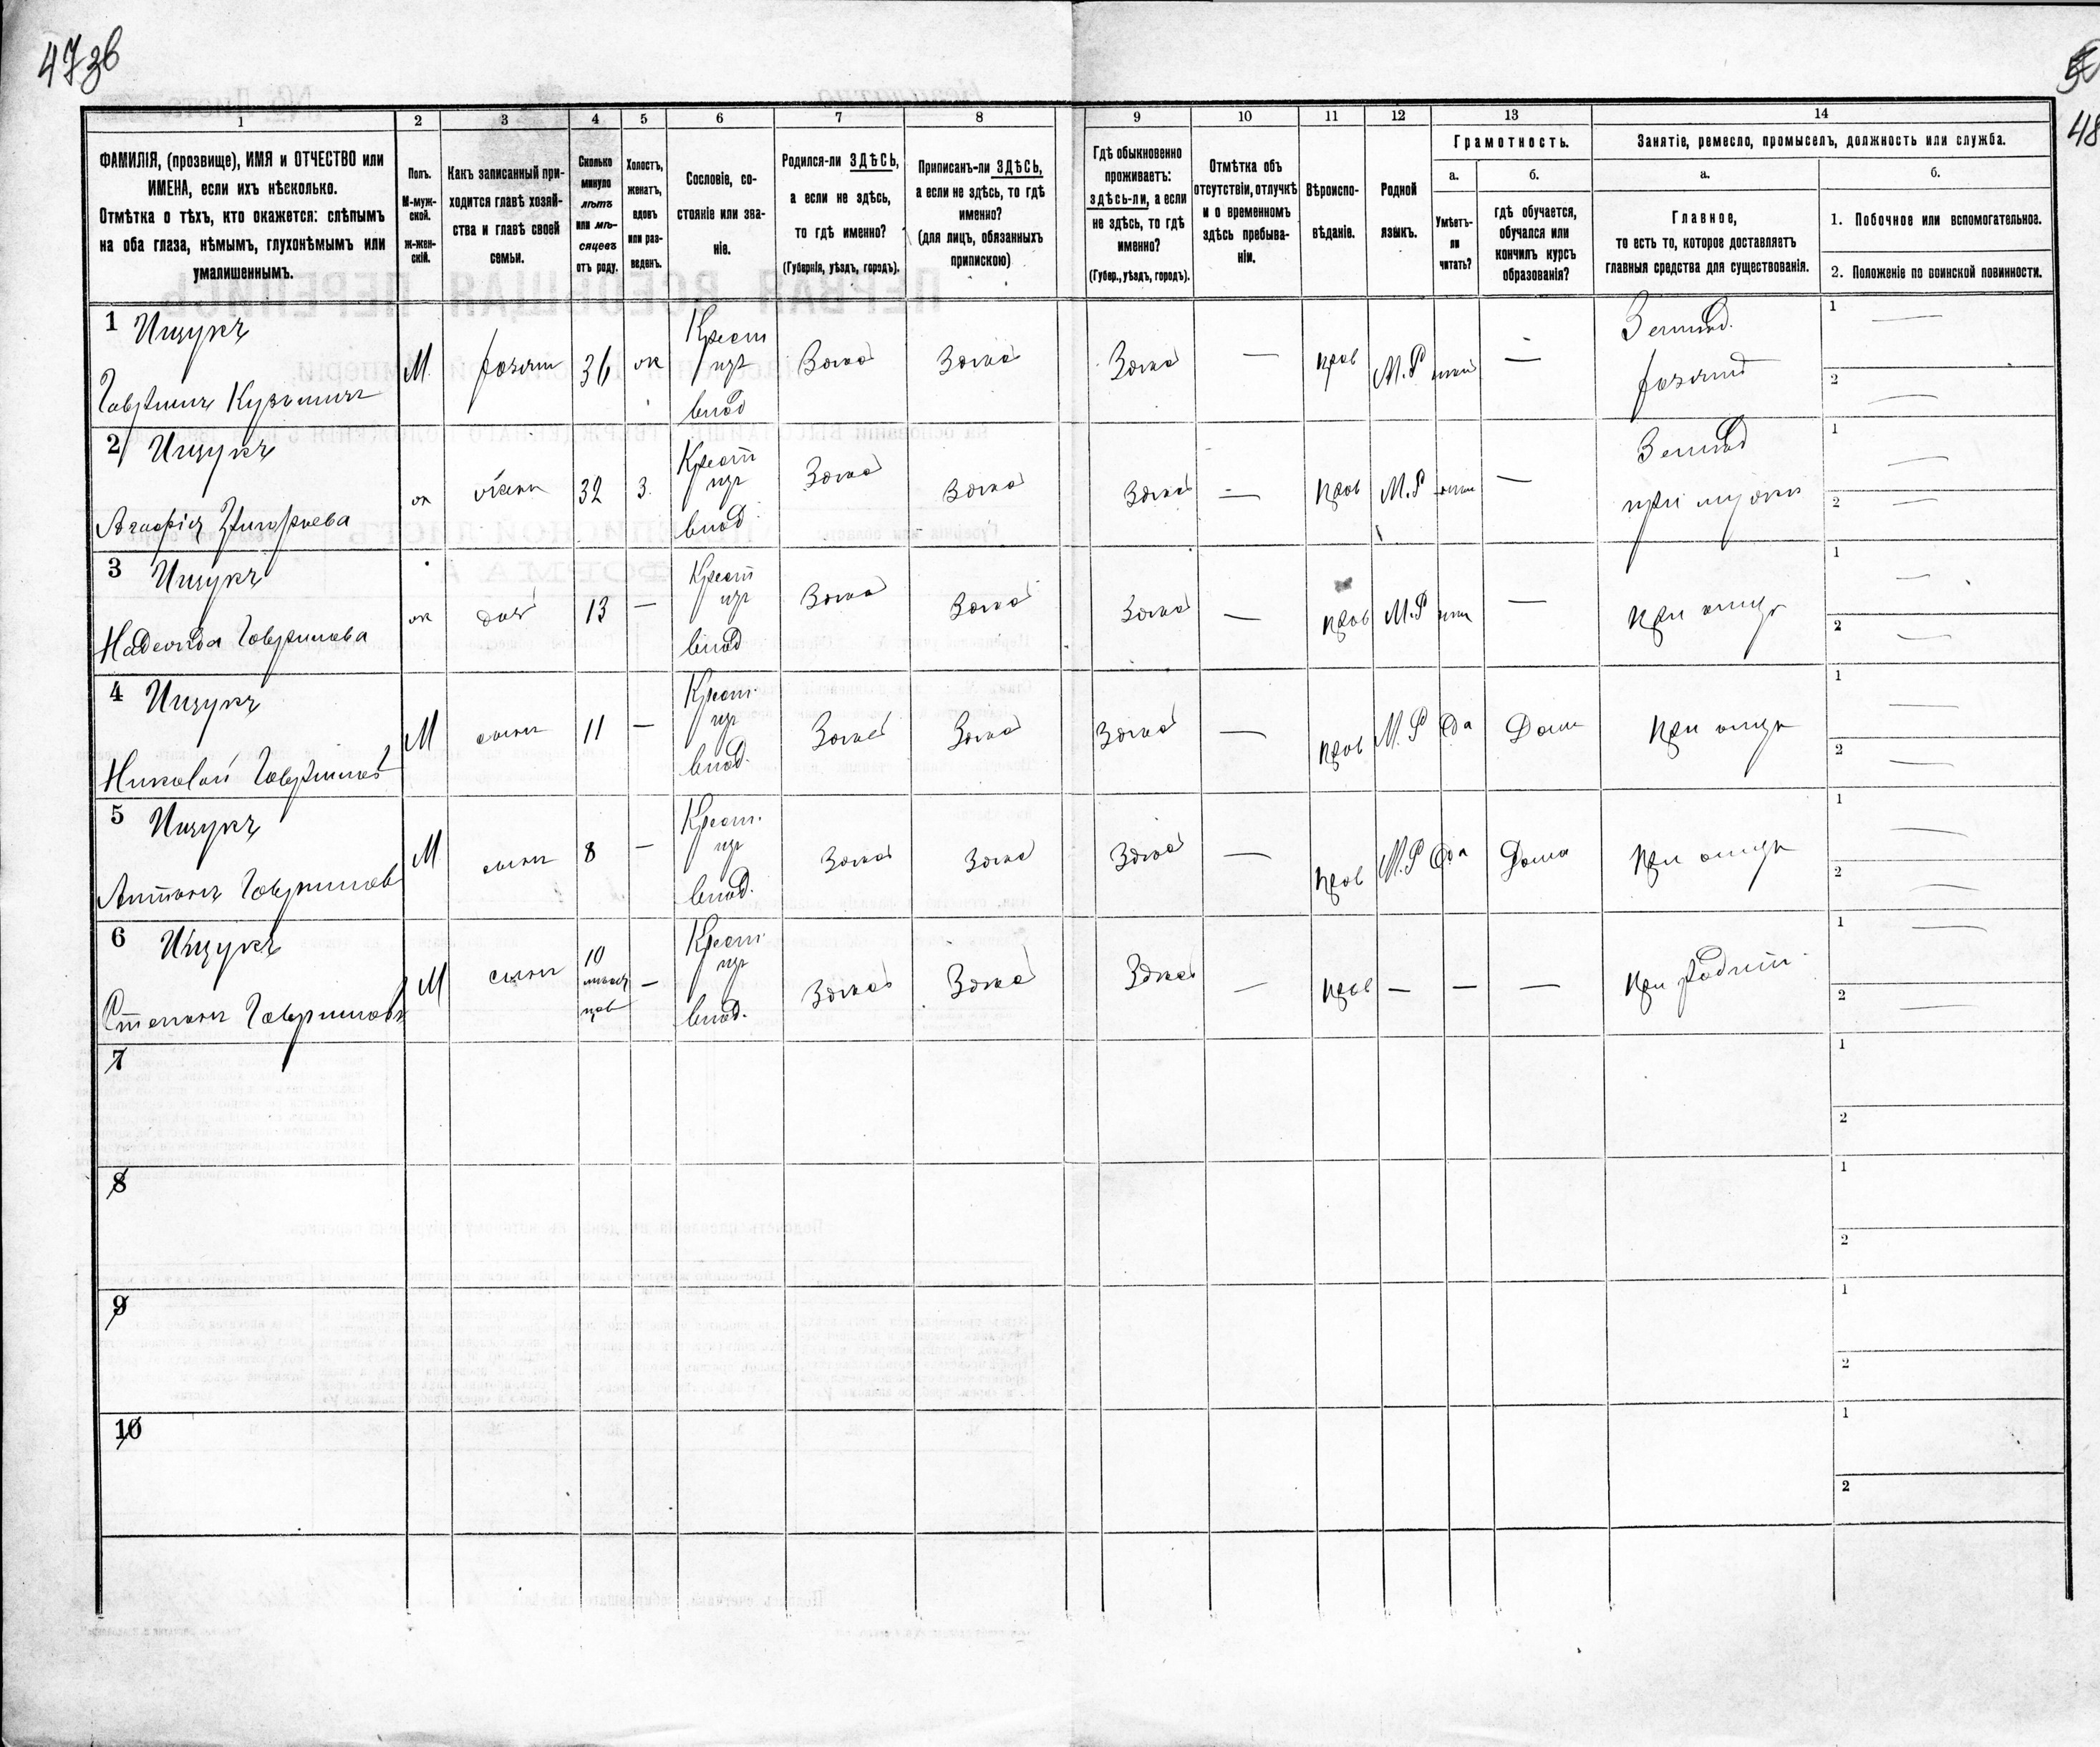 47 зв
48
1
ФАМИЛІЯ, (прозвище), ИМЯ и ОТЧЕСТВО или
ИМЕНА, если ихъ нѣсколько.
Отмѣтка о тѣхъ, кто окажется: слѣпымъ
на оба глаза, нѣмымъ, глухонѣмымъ или
умалишеннымъ.
2
Полъ.
М-муж-
ской.
ж-жен-
скій.
3
Какъ записанный при-
ходится главѣ хозяй-
ства и главѣ своей
семьи.
4
Сколько
минуло
лѣтъ
или мѣ-
сяцевъ
отъ роду.
5
Холостъ,
женатъ,
вдовъ
или раз-
веденъ.
6
Сословіе, со-
стояніе или зва-
ніе.
7
Родился-ли ЗДѢСЬ,
а если не здѣсь,
то гдѣ именно?
(Губернія, уѣздъ, городъ).
8
Приписанъ-ли ЗДѢСЬ,
а если не здѣсь, то гдѣ
именно?
(для лицъ, обязанныхъ
припискою)
9
Гдѣ обыкновенно
проживаетъ:
здѣсь-ли, а если
не здѣсь, то гдѣ
именно?
(Губер., уѣздъ, городъ).
10
Отмѣтка объ
отсутствіи, отлучкѣ
и о временномъ
здѣсь пребыва-
ніи.
11
Вѣроиспо-
вѣданіе.
12
Родной
языкъ.
13
Грамотность.
а.
Умѣетъ-
ли
читать?
б.
гдѣ обучается,
обучался или
кончилъ курсъ
образованія?
14
Занятіе, ремесло, промыселъ, должность или служба.
а.
Главное,
то есть то, которое доставляетъ
главныя средства для существованія.
б.
1. Побочное или вспомогательное.
2. Положеніе по воинской повинности.
1 Ищукъ
Гаврiилъ Кузьмичъ
М. хозяин 36 ж
Крест
изъ
влад
Здѣсь Здѣсь Здѣсь — прав М.Р —
Землед.
хозяин
1 —
2 —
2 Ищукъ
Агафія Григорьева
ж жена 32 З.
Крест
изъ
влад
Здѣсь Здѣсь Здѣсь — прав М.Р —
Землед
при мужѣ
1 —
2 —
3 Ищукъ
Надежда Гаврiилова
ж дочь 13 —
Крест
изъ
влад
Здѣсь Здѣсь Здѣсь — прав М.Р —
при отцѣ
1 —
2 —
4 Ищукъ
Николай Гаврiиловъ
М сынъ 11 —
Крест.
изъ
влад.
Здѣсь Здѣсь Здѣсь — прав М.Р да Дома
при отцѣ
1 —
2 —
5 Ищукъ
Антонъ Гаврiиловъ
М сынъ 8 —
Крест.
изъ
влад.
Здѣсь Здѣсь Здѣсь — прав М.Р да Дома
при отцѣ
1 —
2 —
6 Ищукъ
Степанъ Гаврiиловъ
М сынъ
10
мѣсяц
цов
—
Крест.
изъ
влад.
Здѣсь Здѣсь Здѣсь — прав — — —
при родит.
1 —
2 —
7
1
2
8
1
2
9
1
2
10
1
2